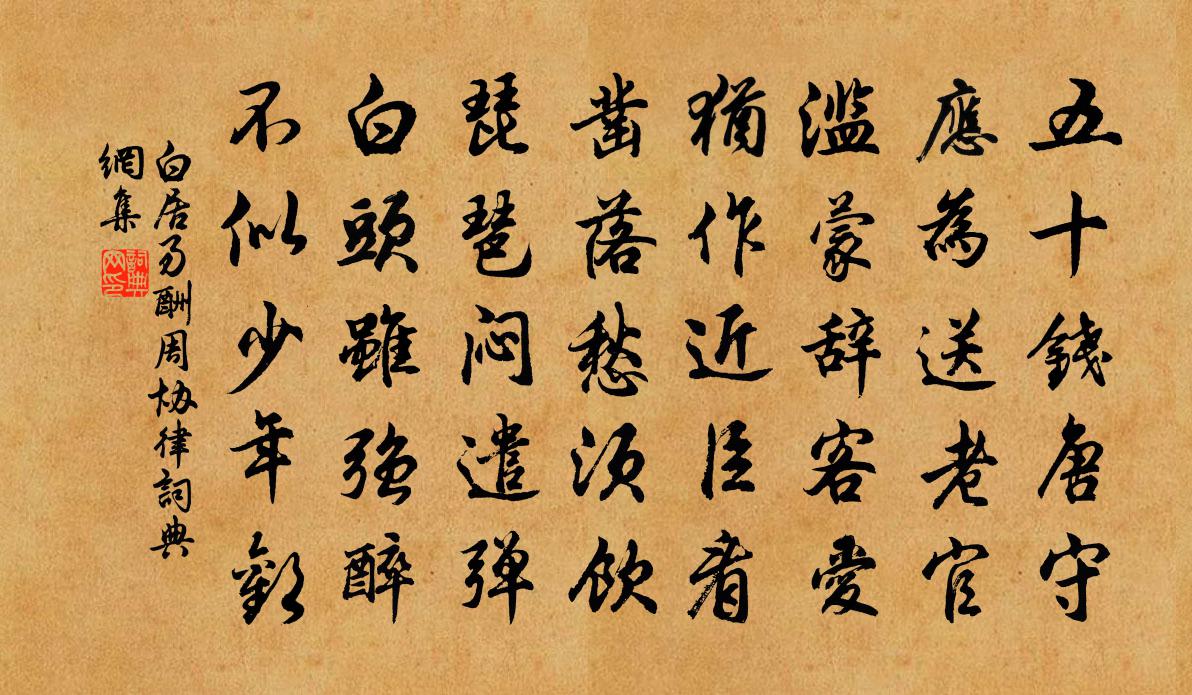 五十錢唐守
應為送老官
濫蒙辞客愛
猶作近臣看
凿落愁须飲
琵琶闷遣弹
白頭雖強醉
不似少年歡
白居易酬周协律詞典
網集
詞典
网印